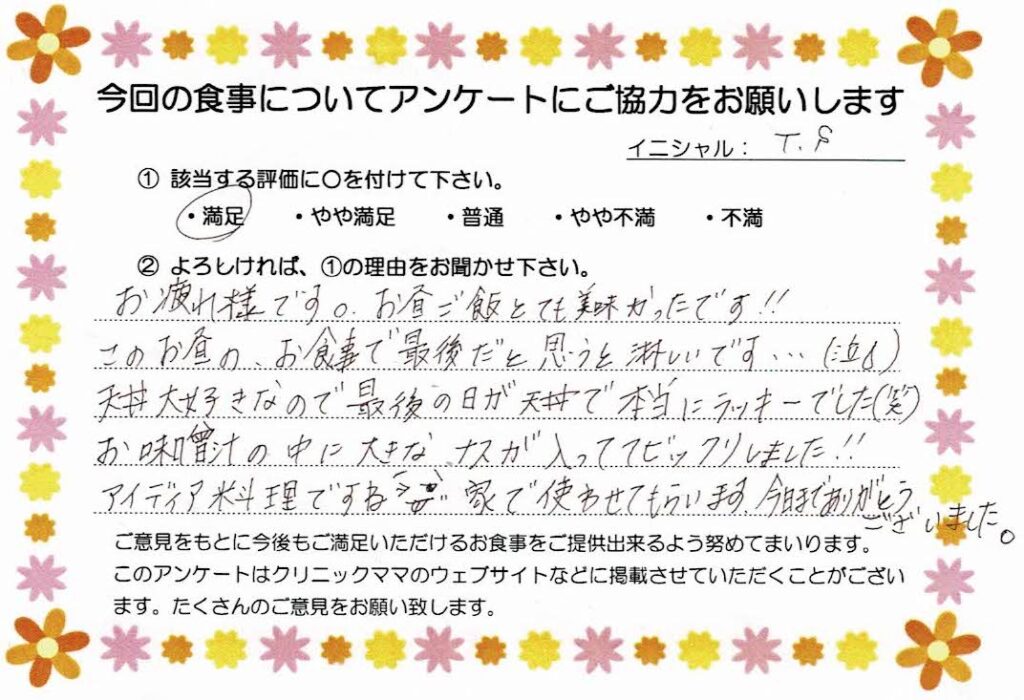 今回の食事についてアンケートにご協力をお願いします
イニシャル： T.S
① 該当する評価に〇を付けて下さい。
・満足 ・やや満足 ・普通 ・やや不満 ・不満
② よろしければ、①の理由をお聞かせ下さい。
お疲れ様です。お昼ご飯とても美味かったです!!
このお昼の、お食事で最後だと思うと淋しいです…(泣)
天丼大好きなので最後の日が天丼で本当にラッキーでした(笑)
お味噌汁の中に大きなナスが入っててビックリしました!!
アイディア料理ですね 家で使わせてもらいます。今日までありがとう
ございました。
ご意見をもとに今後もご満足いただけるお食事をご提供出来るよう努めてまいります。
このアンケートはクリニックママのウェブサイトなどに掲載させていただくことがござい
ます。たくさんのご意見をお願い致します。